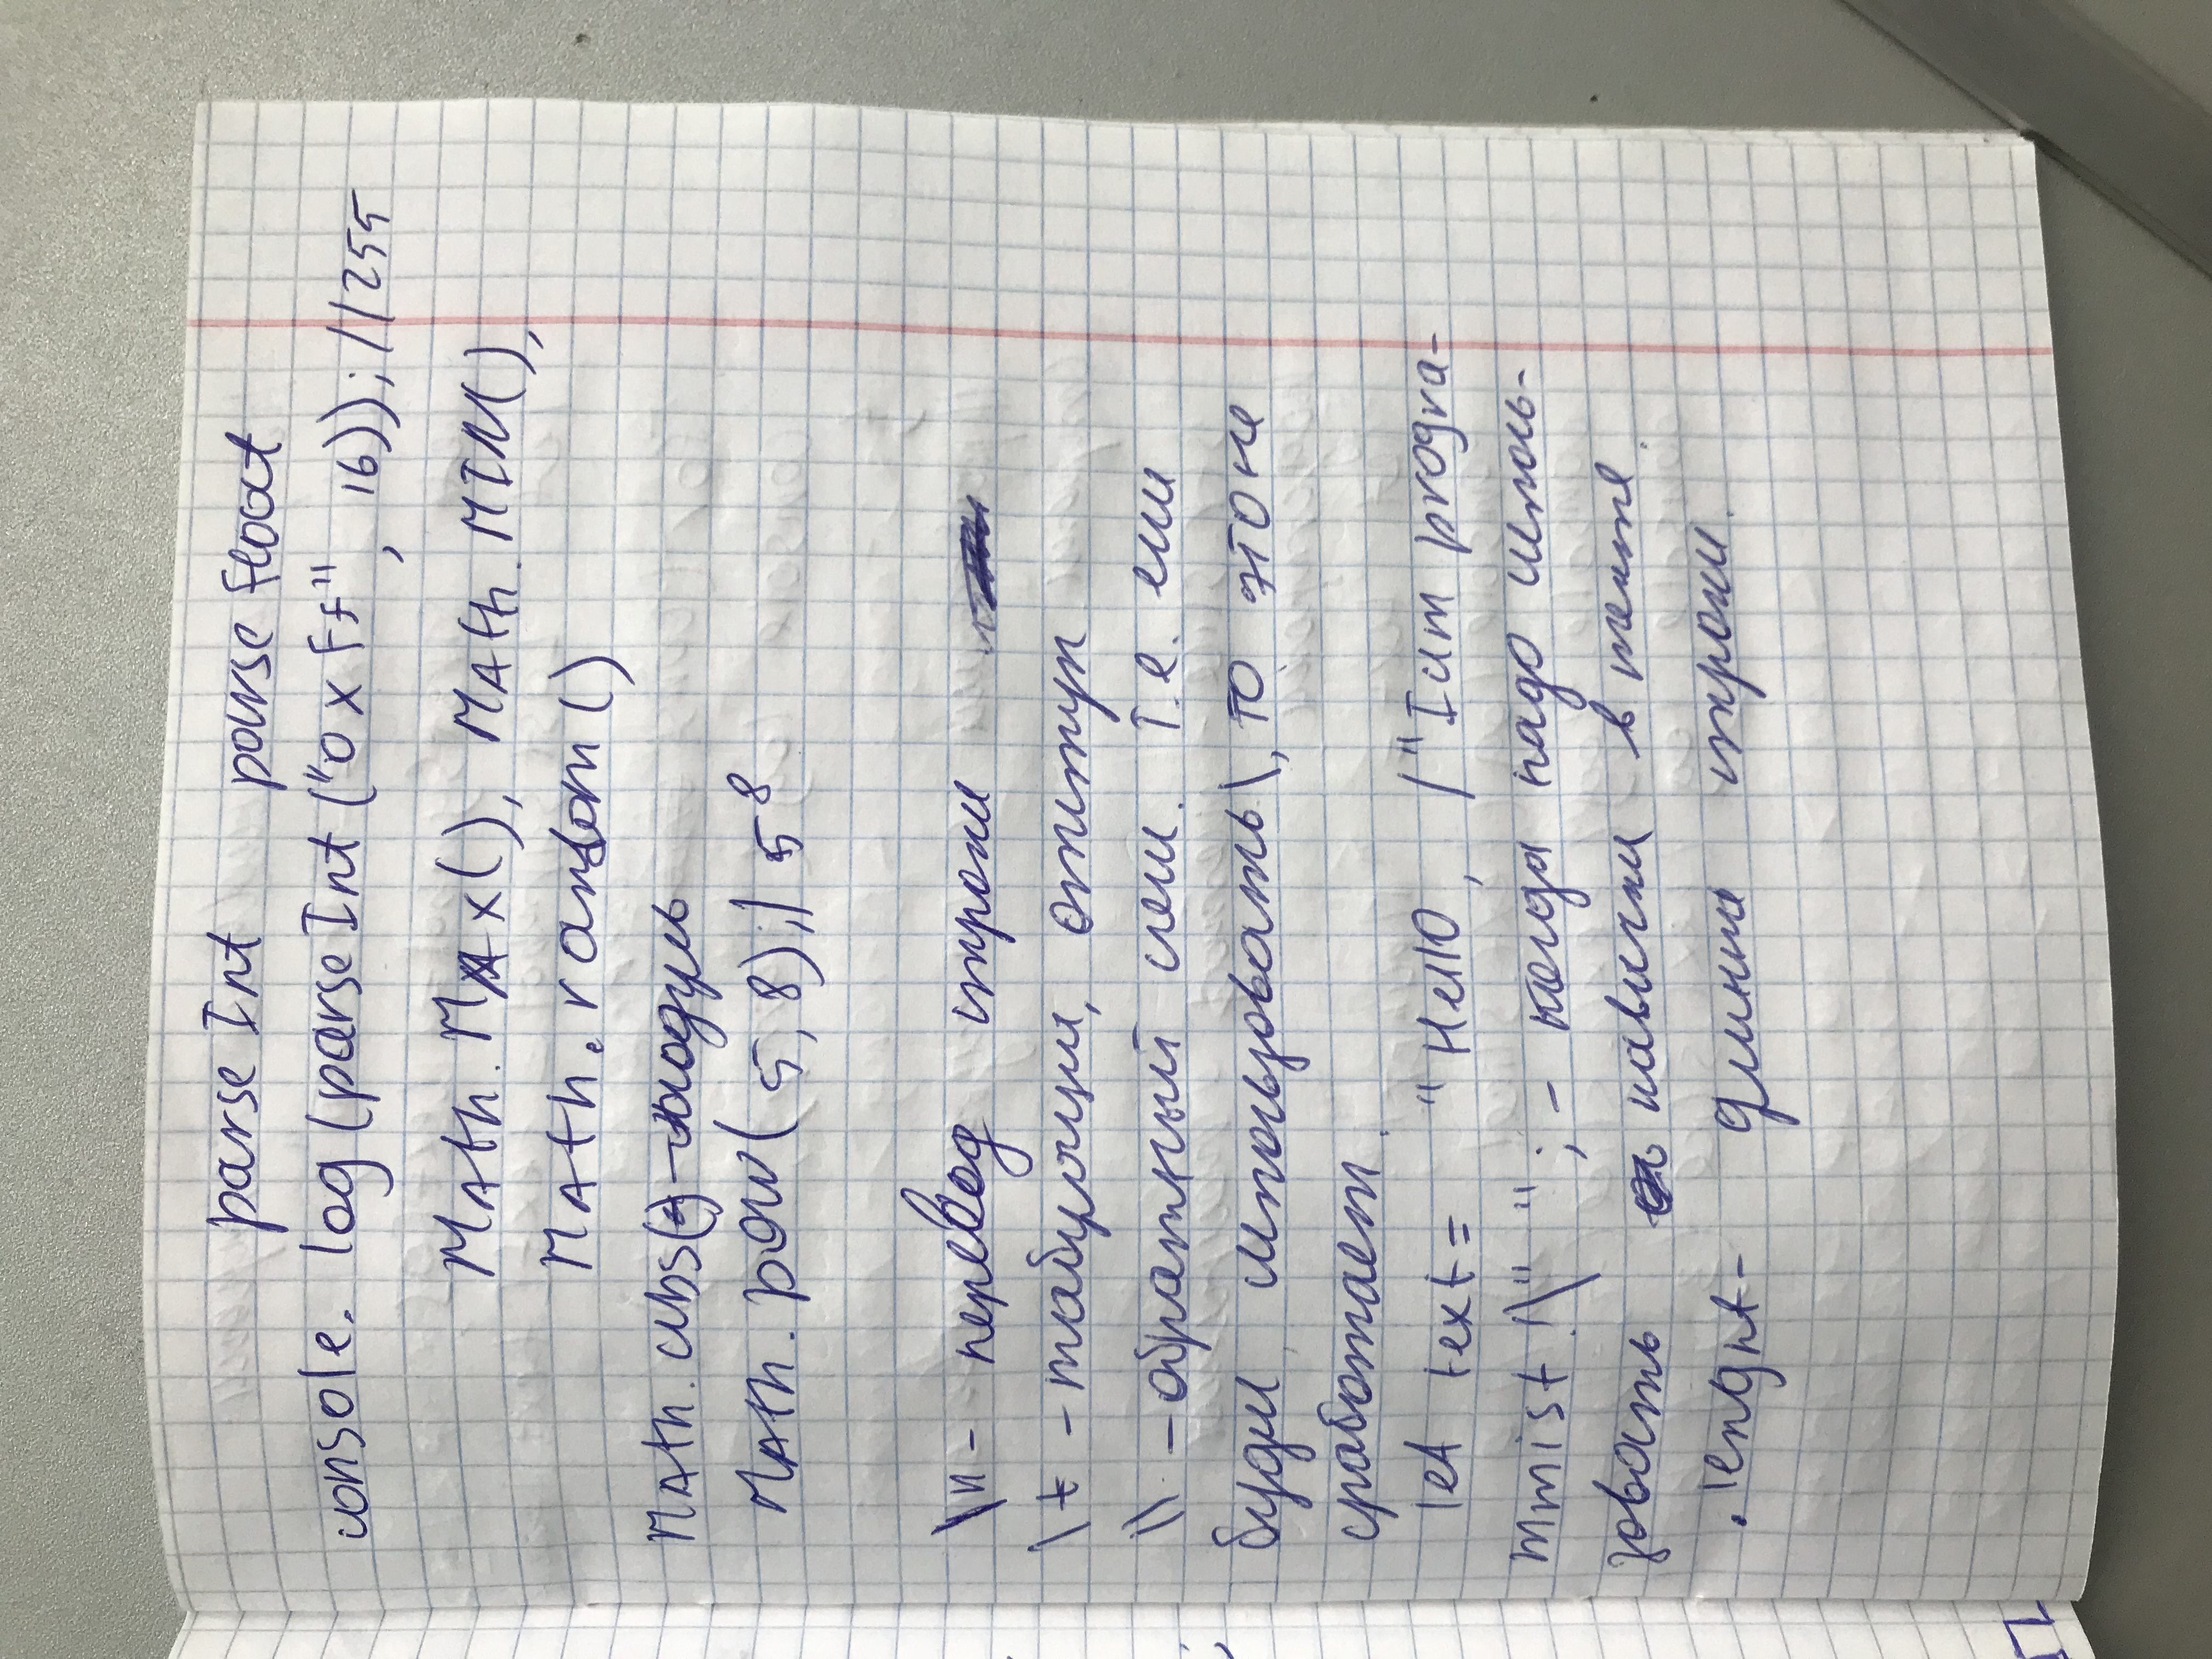 parseInt parseFloat
console.log(parseInt("0xFf", 16)); //255
Math.Max(), Math.MIN(),
Math.random()
Math.abs() - модуль
Math.pow(5,8);// 5⁸
\n - перевод строки
\t - табуляции, отступ
\\ - обратный слеш. Т.е. если
будем использовать \, то это не
сработает.
let text = "Hello, /"I am progra-
mmist!\" "; - когда надо исполь-
зовать кавычки в тексте.
.lenght - длинна строки.